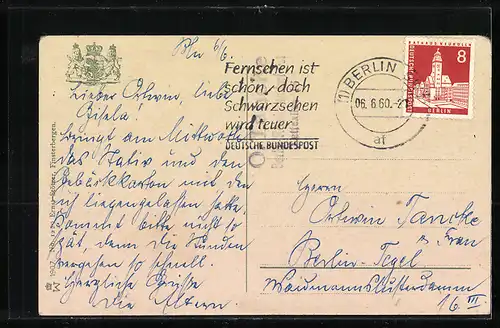 Bln 6/6.
Lieber Ortwin, liebe
Gisela!
Bringt am Mittwoch
das Stativ und den
Gebäckkarton mit den
ich liegengelassen hatte.
Kommt bitte nicht so
spät, denn die Stunden
vergehen so schnell.
Herzliche Grüße
Die Eltern.
Fernsehen ist
schön, doch
Schwarzsehen
wird teuer
DEUTSCHE BUNDESPOST
(1) BERLIN
06. 6. 60.-2
af
RATHAUS NEUKÖLLN
8
DEUTSCHE BUNDESPOST
BERLIN
Herrn
Ortwin Tancke
u. Frau
Berlin-Tegel
Waidmannslusterdamm
16 III
Finsterbergen.